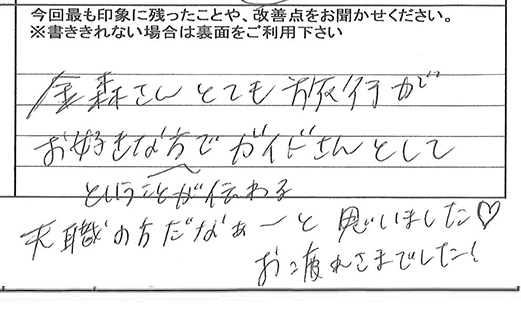 今回最も印象に残ったことや、改善点をお聞かせください。
※書ききれない場合は裏面をご利用下さい
金森さんとても旅行が
お好きな方でガイドさんとして
ということが伝わる
天職の方だなぁーと思いました♡
お疲れさまでした!